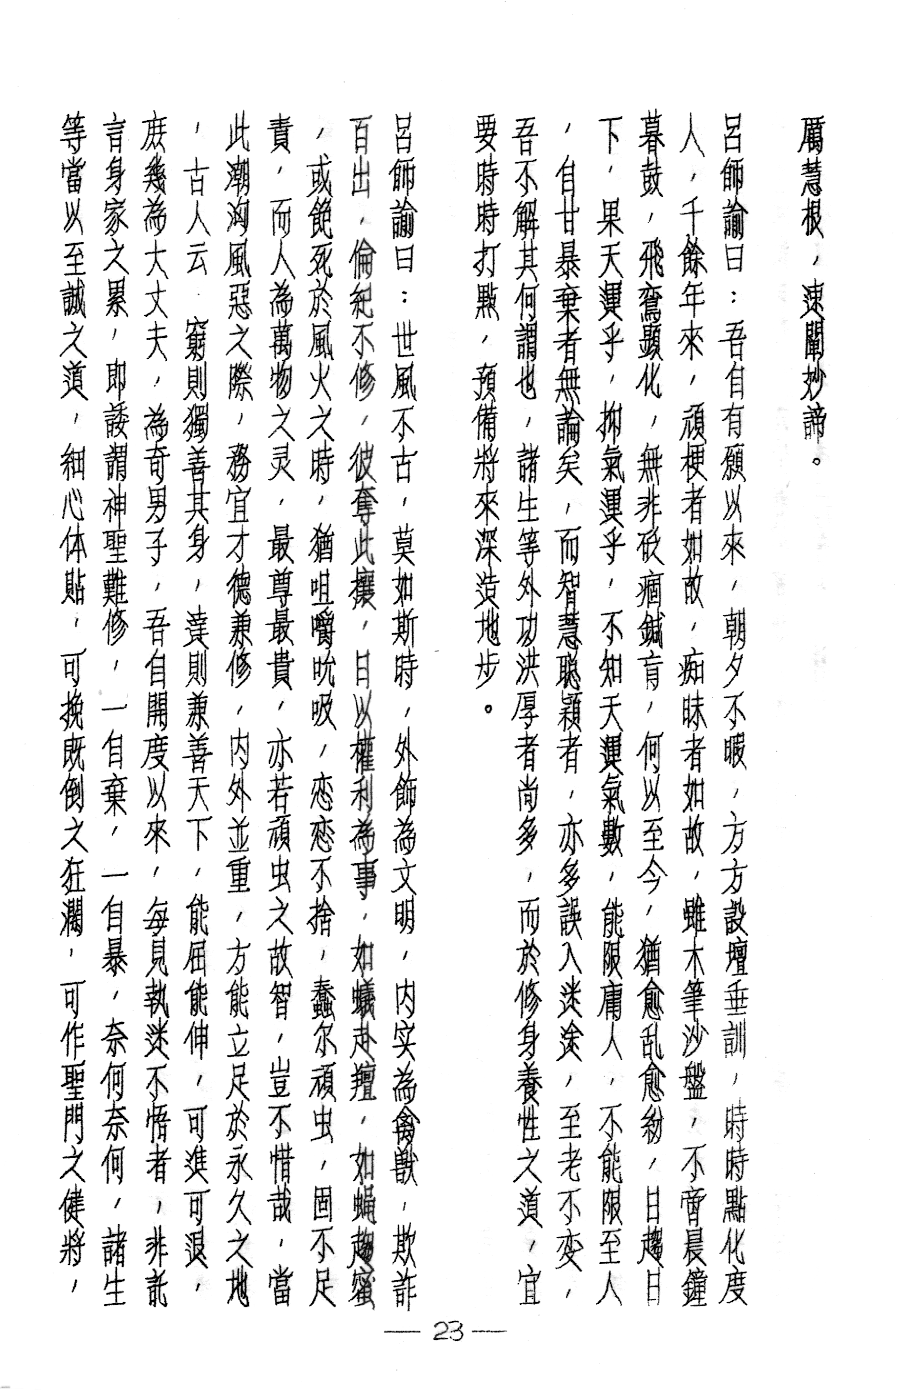 厲慧根，速闡妙諦。
呂師諭曰：吾自有願以來，朝夕不暇，方方設壇垂訓，時時點化度
人，千餘年來，頑梗者如故，痴昧者如故，雖木筆沙盤，不啻晨鐘
暮鼓，飛鸞顯化，無非砭痼鍼肓，何以至今，猶愈乱愈紛，日趨日
下，果天運乎，抑氣運乎，不知天運氣數，能限庸人，不能限至人
，自甘暴棄者無論矣，而智慧聰穎者，亦多誤入迷途，至老不変，
吾不解其何謂也，諸生等外功洪厚者尚多，而於修身養性之道，宜
要時時打點，預備將來深造地步。
呂師諭曰：世風不古，莫如斯時，外飾為文明，内实為禽獸，欺詐
百出，倫紀不修，彼奪此攘，日以權利為事，如蟻赴羶，如蝇趨蜜
，或飽死於風火之時，猶咀嚼吮吸，恋恋不捨，蠢尔頑虫，固不足
責，而人為萬物之灵，最尊最貴，亦若頑虫之故智，豈不惜哉，當
此潮洶風惡之際，務宜才德兼修，内外並重，方能立足於永久之地
，古人云．窮則獨善其身，達則兼善天下，能屈能伸，可進可退，
庶幾為大丈夫，為奇男子，吾自開度以來，每見執迷不悟者，非託
言身家之累，即諉謂神聖難修，一自棄，一自暴，奈何奈何，諸生
等當以至誠之道，細心体貼，可挽既倒之狂瀾，可作聖門之健將，
— 23 —